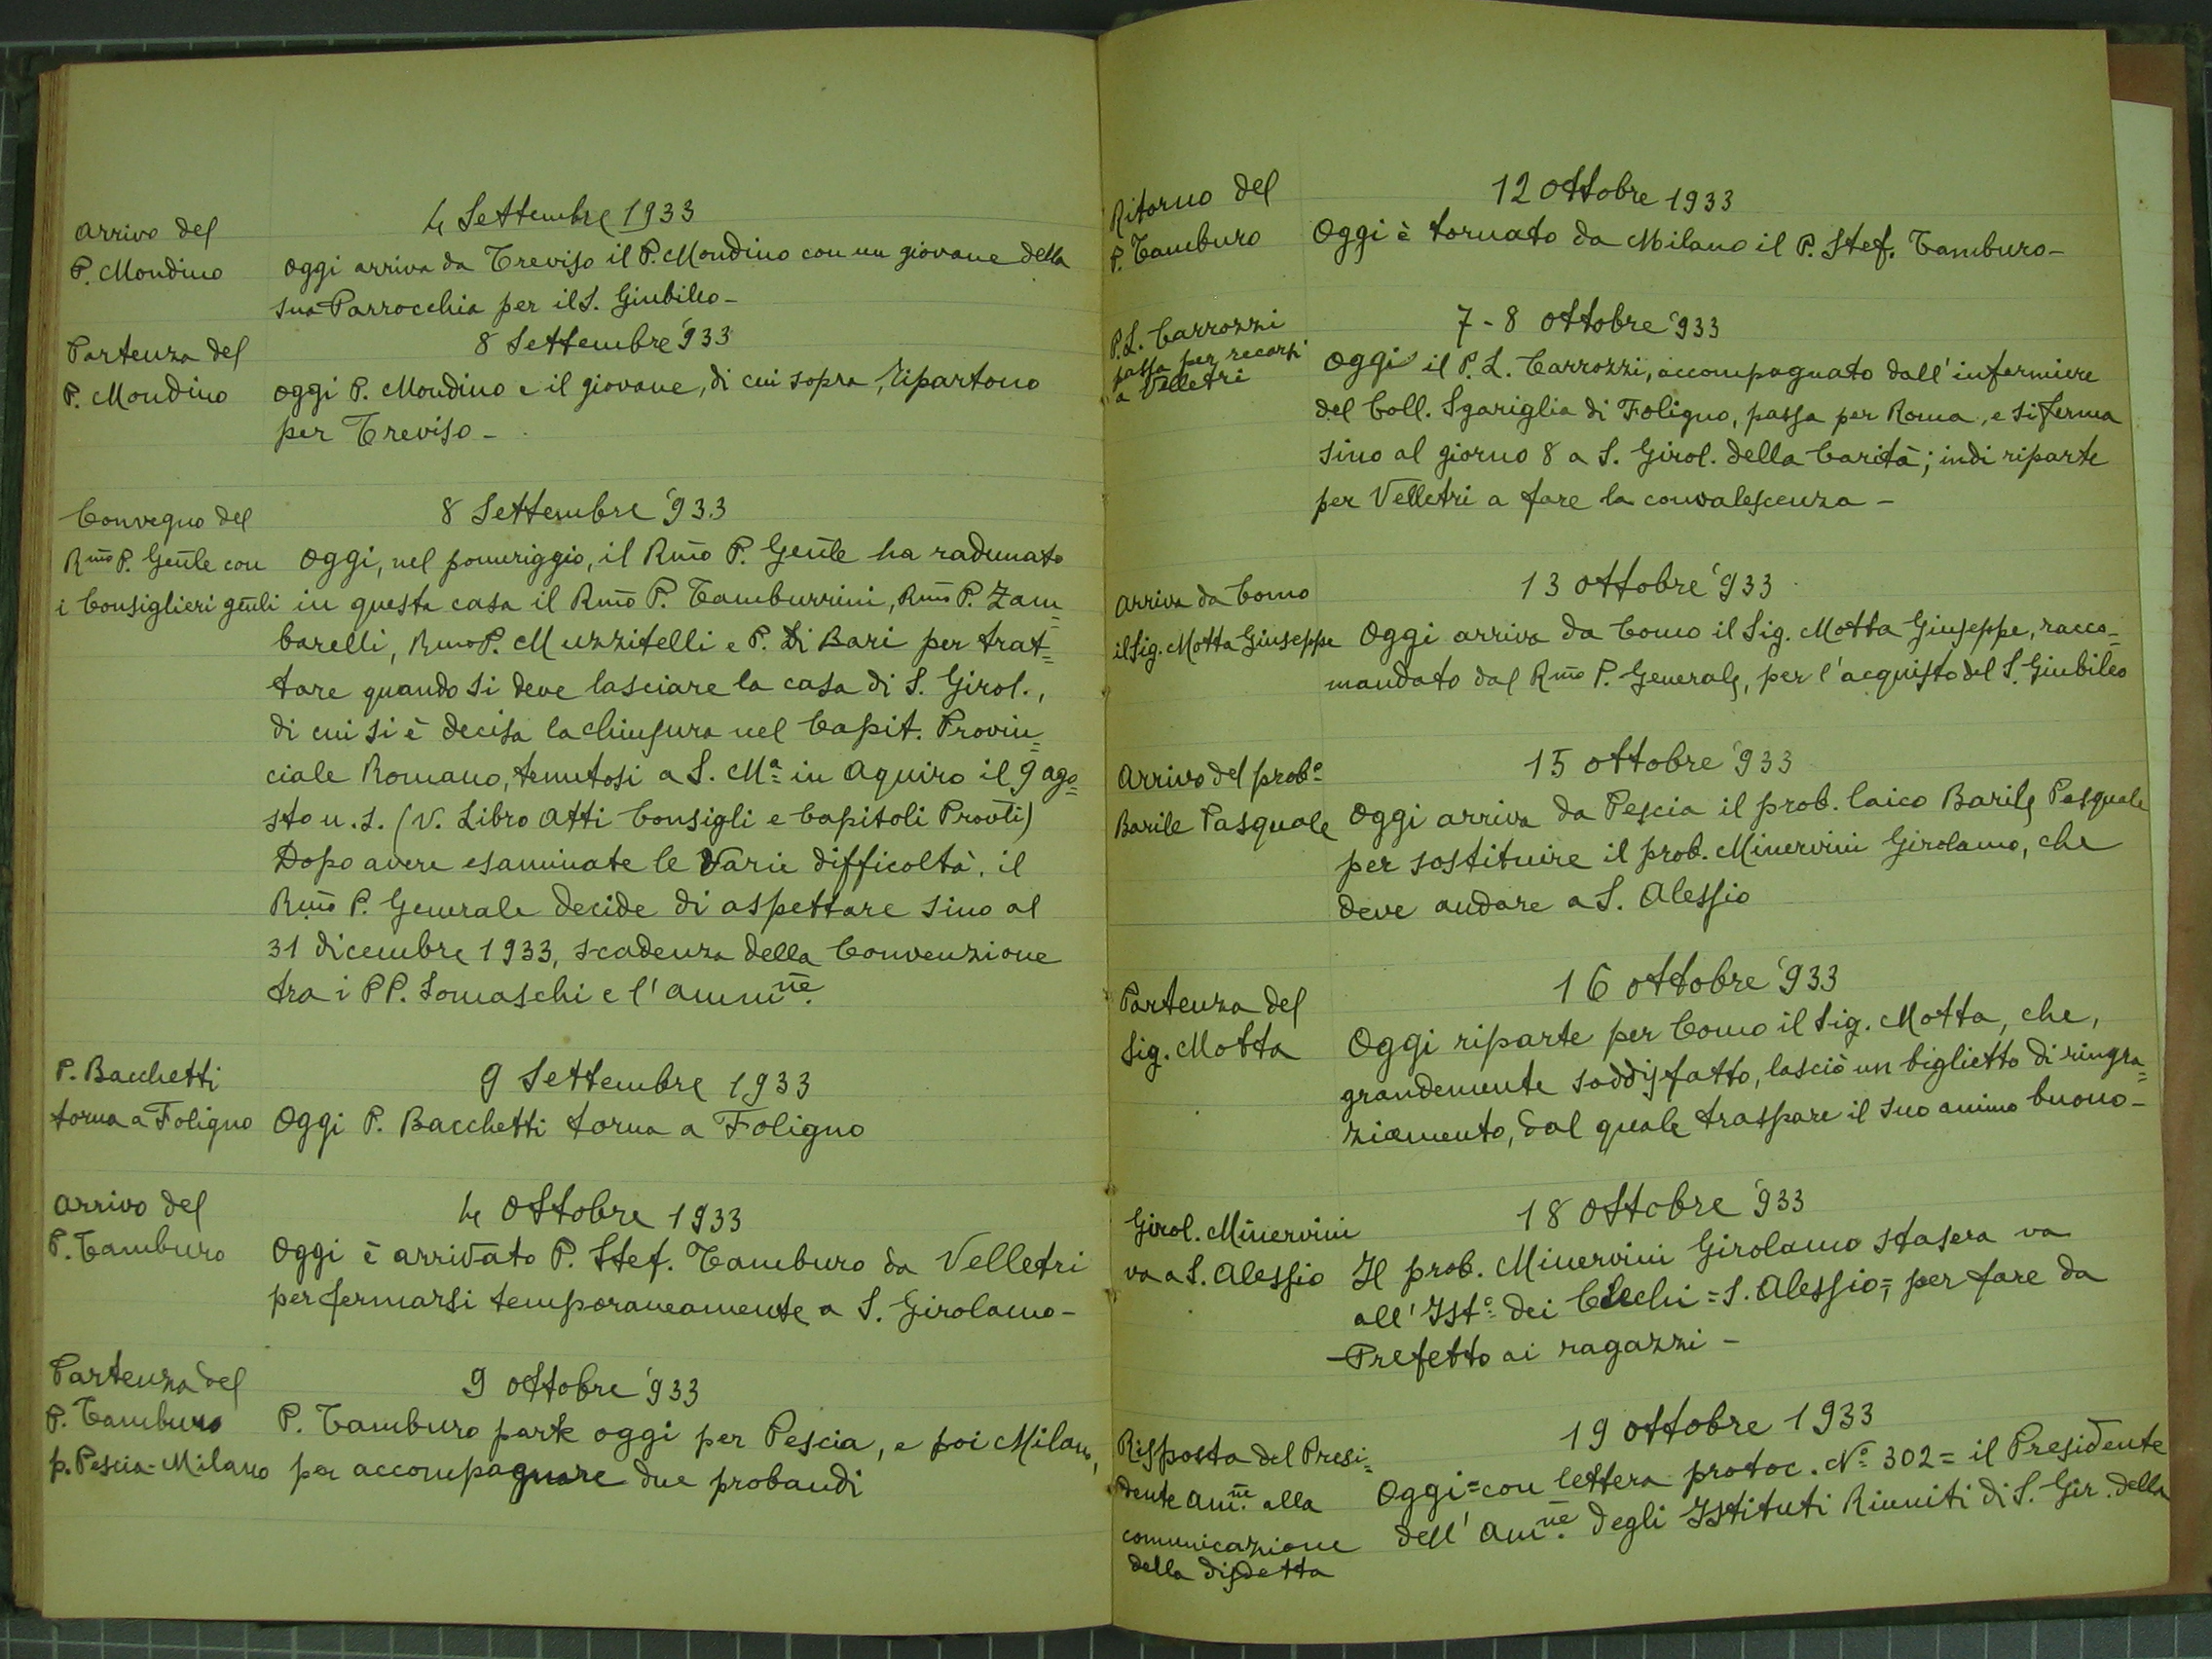 4 Settembre 1933
Arrivo del
P. Mondino
Oggi arriva da Treviso il P. Mondino con un giovane della
sua Parrocchia per il S. Giubileo -
8 Settembre '933
Partenza del
P. Mondino
Oggi P. Mondino e il giovane, di cui sopra, ripartono
per Treviso -
8 Settembre '933
Convegno del
Rmo P. Genle con
i Consiglieri genli
Oggi, nel pomeriggio, il Rmo P. Genle ha radunato
in questa casa il Rmo P. Tamburrini, Rmo P. Zam=
barelli, Rmo P. Muzzitelli e P. Di Bari per trat=
tare quando si deve lasciare la casa di S. Girol.,
di cui si è decisa la chiusura nel Capit. Provin=
ciale Romano, tenutosi a S. Ma in Aquiro il 9 ago=
sto u.s. (V. Libro Atti Consigli e Capitoli Provli)
Dopo avere esaminate le varie difficoltà, il
Rmo P. Generale decide di aspettare sino al
31 dicembre 1933, scadenza della Convenzione
tra i PP. Somaschi e l'Ammne.
P. Bacchetti
torna a Foligno
9 Settembre 1933
Oggi P. Bacchetti torna a Foligno
Arrivo del
P. Tamburo
4 Ottobre 1933
Oggi è arrivato P. Stef. Tamburo da Velletri
per fermarsi temporaneamente a S. Girolamo -
Partenza del
P. Tamburo
p. Pescia-Milano
9 Ottobre '933
P. Tamburo parte oggi per Pescia, e poi Milano,
per accompagnare due probandi
Ritorno del
P. Tamburo
12 Ottobre 1933
Oggi è tornato da Milano il P. Stef. Tamburo -
P. L. Carrozzi
passa per recarsi
a Velletri
7 - 8 Ottobre '933
Oggi il P. L. Carrozzi, accompagnato dall'infermiere
del Coll. Sgariglia di Foligno, passa per Roma, e si ferma
sino al giorno 8 a S. Girol. della Carità; indi riparte
per Velletri a fare la convalescenza -
Arriva da Como
il Sig. Motta Giuseppe
13 Ottobre '933
Oggi arriva da Como il Sig. Motta Giuseppe, racco=
mandato dal Rmo P. Generale, per l'acquisto del S. Giubileo
Arrivo del probo
Barile Pasquale
15 Ottobre '933
Oggi arriva da Pescia il prob. laico Barile Pasquale
per sostituire il prob. Minervini Girolamo, che
deve andare a S. Alessio
Partenza del
Sig. Motta
16 Ottobre '933
Oggi riparte per Como il Sig. Motta, che,
grandemente soddisfatto, lasciò un biglietto di ringra=
ziamento, dal quale traspare il suo animo buono -
Girol. Minervini
va a S. Alessio
18 Ottobre '933
Il prob. Minervini Girolamo stasera va
all'Isto dei Ciechi = S. Alessio =, per fare da
Prefetto ai ragazzi -
Risposta del Presi=
dente Amne. alla
comunicazione
della disdetta
19 Ottobre 1933
Oggi = con lettera protoc. No 302 = il Presidente
dell'Amne. degli Istituti Riuniti di S. Gir. della